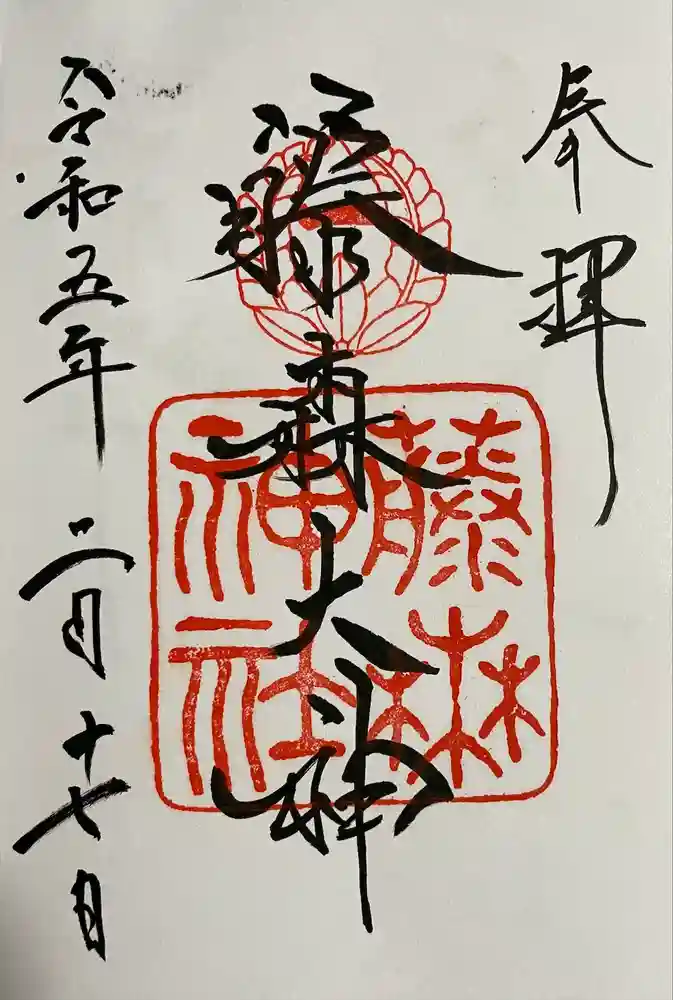 奉拝
藤森大神
藤森
神社
令和五年 二月 十七日